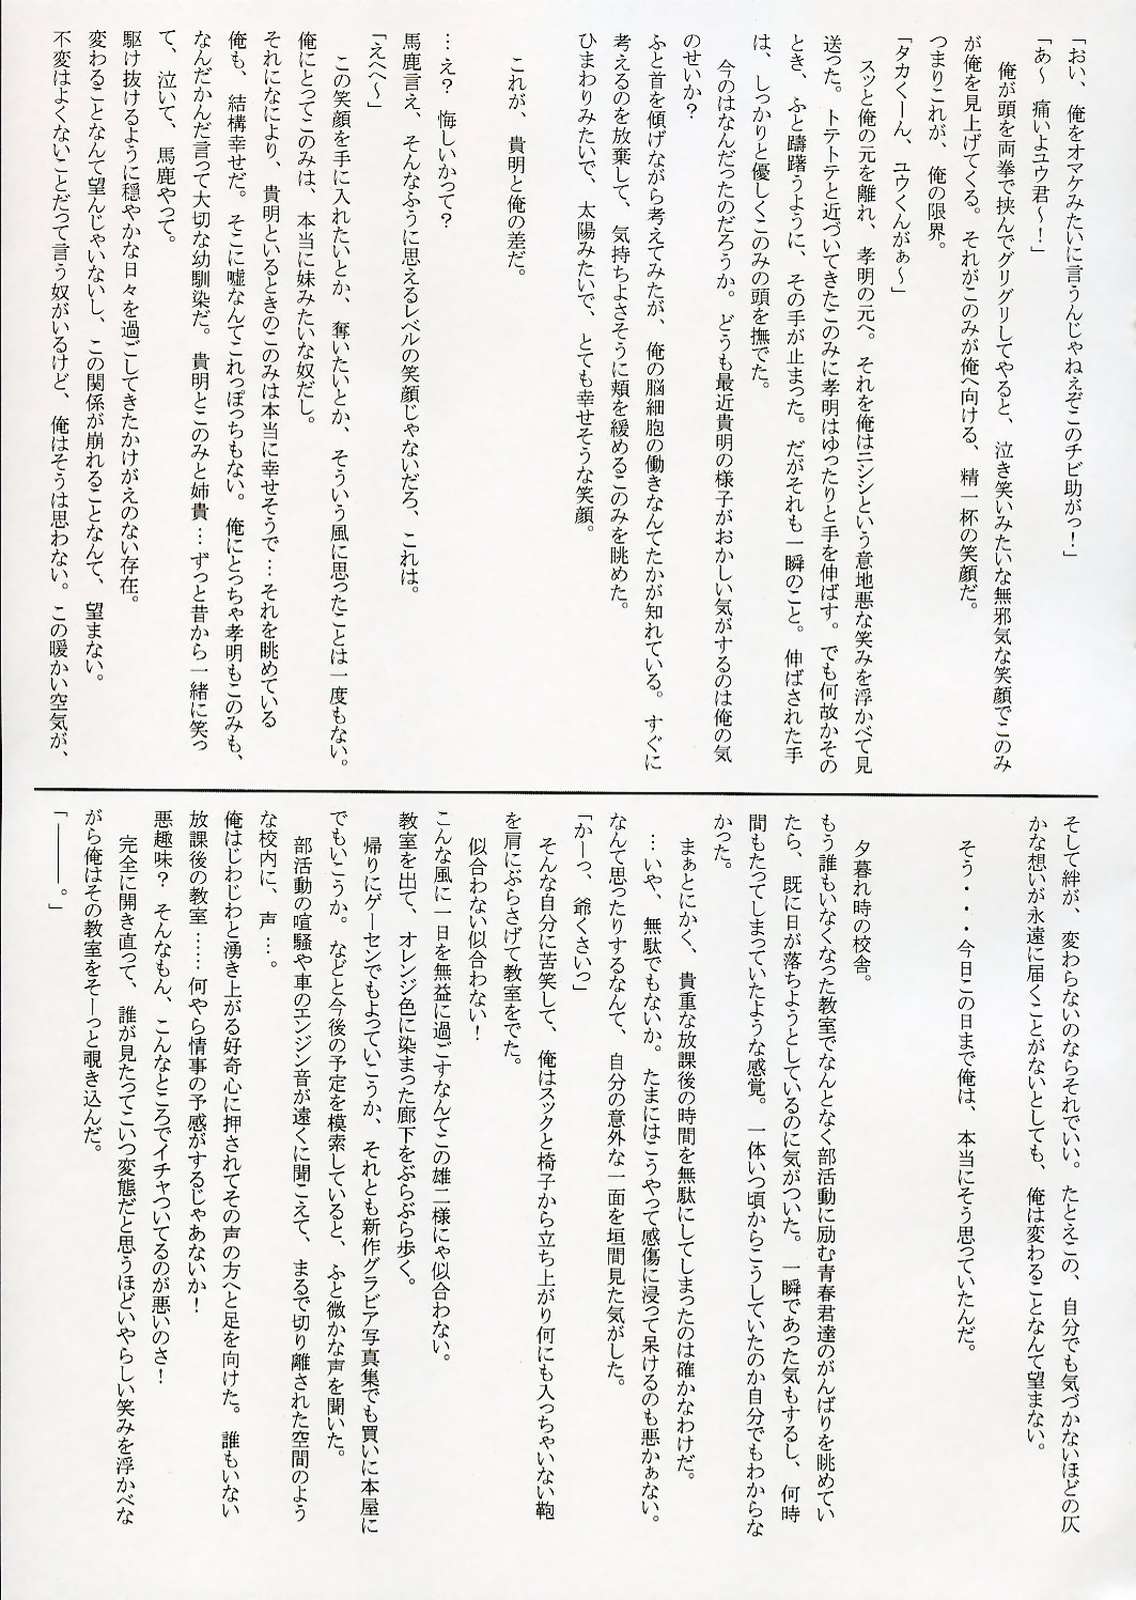 「おい、俺をオマケみたいに言うんじゃねぇぞこのチビ助がっ！」
「あ～　痛いよユウ君～！」
　俺が頭を両拳で挟んでグリグリしてやると、泣き笑いみたいな無邪気な笑顔でこのみ
が俺を見上げてくる。それがこのみが俺へ向ける、精一杯の笑顔だ。
つまりこれが、俺の限界。
「タカくーん、ユウくんがぁ～」
　スッと俺の元を離れ、孝明の元へ。それを俺はニシシという意地悪な笑みを浮かべて見
送った。トテトテと近づいてきたこのみに孝明はゆったりと手を伸ばす。でも何故かその
とき、ふと躊躇うように、その手が止まった。だがそれも一瞬のこと。伸ばされた手
は、しっかりと優しくこのみの頭を撫でた。
　今のはなんだったのだろうか。どうも最近貴明の様子がおかしい気がするのは俺の気
のせいか？
ふと首を傾げながら考えてみたが、俺の脳細胞の働きなんてたかが知れている。すぐに
考えるのを放棄して、気持ちよさそうに頬を緩めるこのみを眺めた。
ひまわりみたいで、太陽みたいで、とても幸せそうな笑顔。
　これが、貴明と俺の差だ。
…え？　悔しいかって？
馬鹿言え、そんなふうに思えるレベルの笑顔じゃないだろ、これは。
「えへ～」
　この笑顔を手に入れたいとか、奪いたいとか、そういう風に思ったことは一度もない。
俺にとってこのみは、本当に妹みたいな奴だし。
それになにより、貴明といるときのこのみは本当に幸せそうで…それを眺めている
俺も、結構幸せだ。そこに嘘なんてこれっぽっちもない。俺にとっちゃ孝明もこのみも、
なんだかんだ言って大切な幼馴染だ。貴明とこのみと姉貴…ずっと昔から一緒に笑っ
て、泣いて、馬鹿やって。
駆け抜けるように穏やかな日々を過ごしてきたかけがえのない存在。
変わることなんて望んじゃいないし、この関係が崩れることなんて、望まない。
不変はよくないことだって言う奴がいるけど、俺はそうは思わない。この暖かい空気が、
そして絆が、変わらないのならそれでいい。たとえこの、自分でも気づかないほどの仄
かな想いが永遠に届くことがないとしても、俺は変わることなんて望まない。
　そう・・・今日この日まで俺は、本当にそう思っていたんだ。
　夕暮れ時の校舎。
もう誰もいなくなった教室でなんとなく部活動に励む青春君達のがんばりを眺めてい
たら、既に日が落ちようとしているのに気がついた。一瞬であった気もするし、何時
間もたってしまっていたような感覚。一体いつ頃からこうしていたのか自分でもわからな
かった。
　まぁとにかく、貴重な放課後の時間を無駄にしてしまったのは確かなわけだ。
　…いや、無駄でもないか。たまにはこうやって感傷に浸って呆けるのも悪かぁない。
なんて思ったりするなんて、自分の意外な一面を垣間見た気がした。
「かーっ、爺くさいっ」
　そんな自分に苦笑して、俺はスックと椅子から立ち上がり何にも入っちゃいない鞄
を肩にぶらさげて教室をでた。
　似合わない似合わない！
こんな風に一日を無益に過ごすなんてこの雄二様にゃ似合わない。
教室を出て、オレンジ色に染まった廊下をぶらぶら歩く。
　帰りにゲーセンでもよっていこうか、それとも新作グラビア写真集でも買いに本屋に
でもいこうか。などと今後の予定を模索していると、ふと微かな声を聞いた。
　部活動の喧騒や車のエンジン音が遠くに聞こえて、まるで切り離された空間のよう
な校内に、声…。
俺はじわじわと湧き上がる好奇心に押されてその声の方へと足を向けた。誰もいない
放課後の教室……何やら情事の予感がするじゃあないか！
悪趣味？　そんなもん、こんなところでイチャついてるのが悪いのさ！
　完全に開き直って、誰が見たってこいつ変態だと思うほどいやらしい笑みを浮かべな
がら俺はその教室をそーっと覗き込んだ。
「───。」